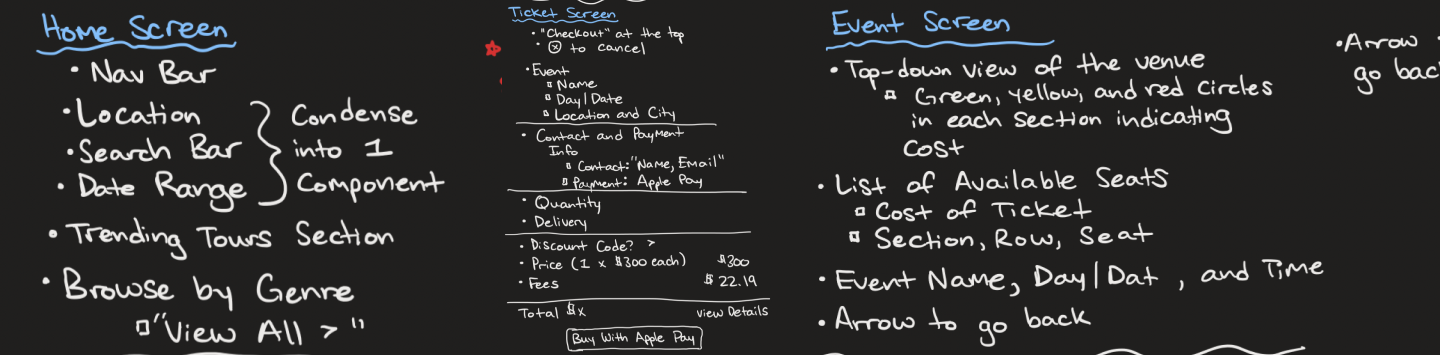 Home Screen
• Nav Bar
• Location
• Search Bar
• Date Range
Condense
into 1
Component
• Trending Tours Section
• Browse by Genre
"View All > "
Ticket Screen
• "Checkout" at the top
• ⓧ to cancel
• Event
Name
Day/Date
Location and City
• Contact and Payment
Info
Contact: "Name, Email"
Payment: Apple Pay
• Quantity
• Delivery
• Discount Code? >
• Price (1 x $300 each) $300
• Fees $22.19
Total $x view Details
Buy With Apple Pay
Event Screen
• Top-down view of the venue
Green, yellow, and red circles
in each section indicating
cost
• List of Available Seats
Cost of Ticket
Section, Row, Seat
• Event Name, Day/Dat , and Time
• Arrow to go back
• Arrow
go bac